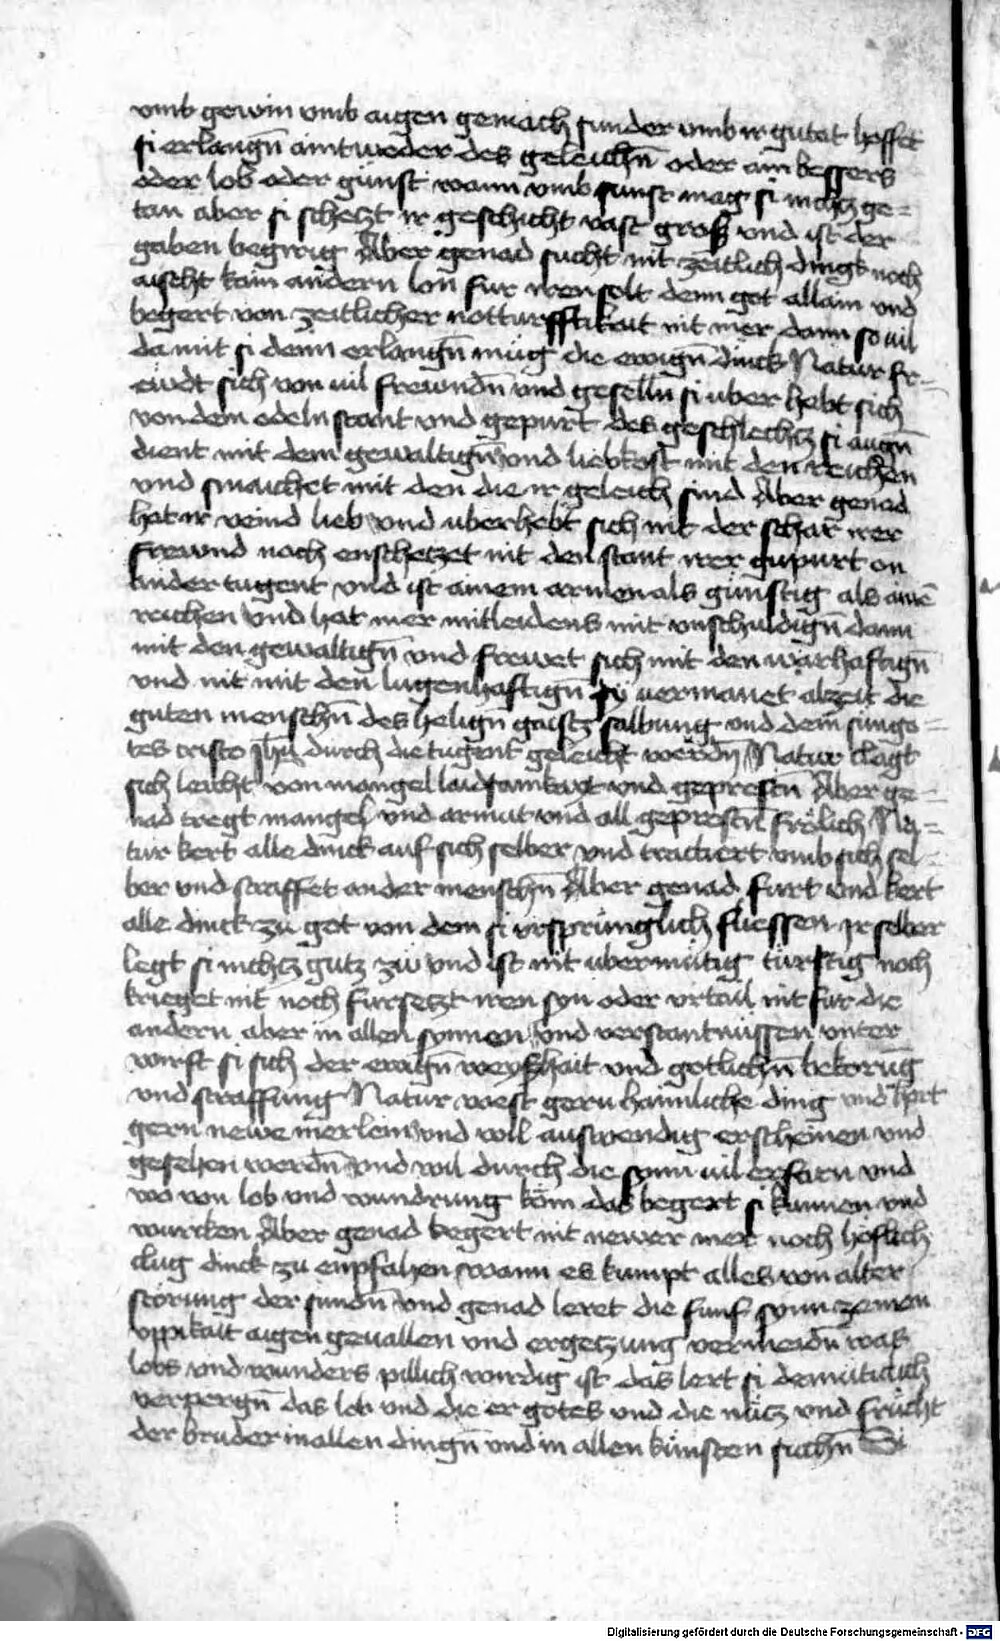 vmb gewin vmb aigen gemach sunder vmb ir gutat hoffet
si erlangn̄ aintweder des geleichn̄ oder ain bessers
oder lob oder gunst wann vmb sunst mag si nichtz ge=
tan aber si schetzt ir geschicht vast groß vnd ist der
gaben begirig Aber genad sucht nit zeitlich dingk noch
aischt kain andern lon fur iren solt denn got allain vnd
begert von zeitlicher notturfftikait nit mer dann so uil
da mit si denn erlangn̄ müg die ewign̄ dinck Natur fr=
ewdt sich von uil frewndn̄ vnd geselln si uber hebt sich
von dem edeln stant vnd gepurt des geschlechtz si augn̄
dient mit dem gewaltign̄ vnd liebkost mit den reichen
vnd smaichet mit den die ir geleich sind Aber genad
hat ir veind lieb vnd uberhebt sich nit der schar irer
frewnd noch enschetzet nit den stant irer gupurt on
ander tugent vnd ist ainem armen als günstig als ainē
reichen vnd hat mer mitleidens mit vnschuldign̄ dann
mit den gewaltign̄ vnd frewet sich mit den warhaftign̄
vnd nit mit den lugenhaftign̄ Sy uermanet alzeit die
guten menschn̄ des helign̄ gaistz salbung vnd dem sun go=
tes cristo ihū durch die tugent geleicht werdn̄ Natur clagt
sich leicht von mangel laidsamkayt vnd geprestn̄ Aber ge=
nad tregt mangel vnd armut vnd all geprestn̄ frölich Na=
tur kert alle dinck auf sich selber vnd tractiert vmb sich sel=
ber vnd straffet ander menschn̄ Aber genad furt vnd kert
alle dinck zu got von dem si vrsprünglich fliessen Ir selber
legt si nichtz gutz zü vnd ist nit ubermütig türstig noch
krieget nit noch fursetzt iren syn oder vrtail nit für die
andern aber in allen synnen vnd verstantnüssen vnter
wirft si sich der ewign̄ weyßhait vnd gotlichn̄ bekorūg
vnd straffung Natur west gern haimliche ding vnd hört
gern newe merlein vnd will auswendig erscheinen vnd
gesehen werdn̄ vnd wil durch die synn uil erfarn vnd
wo von lob vnd wundrung köm das begert si kunnen vnd
wurcken Aber genad begert nit newer mer noch höflich
clug dinck zu enpfahen wann es kumpt alles von alter
störung der sundn̄ vnd genad leret die funf synn zemen
vppikait aigen geuallen vnd ergetzung vermeidn̄ was
lobs vnd wunders pillich wirdig ist das lert si demütiklich
verpergn̄ das lob vnd die er gotes vnd die nütz vnd frücht
der bruder in allen dingn̄ vnd in allen künsten suchn̄ Si
Digitalisierung gefördert durch die Deutsche Forschungsgemeinschaft - DFG